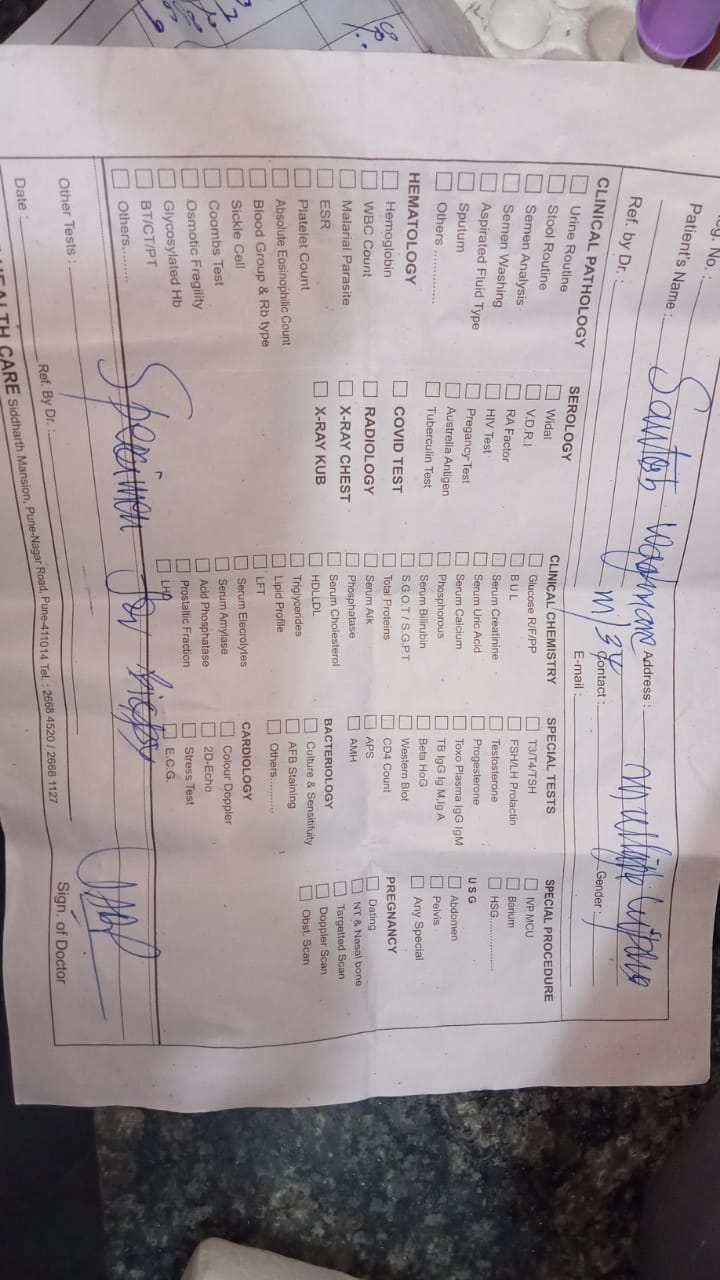 g. No. :
Patient's Name : Santosh Address : multiple lipoma
Ref. by Dr. : m/34 Contact : Gender :
E-mail :
CLINICAL PATHOLOGY
Urine Routine
Stool Routine
Semen Analysis
Semen Washing
Aspirated Fluid Type
Sputum
Others ..............
HEMATOLOGY
Hemoglobin
WBC Count
Malarial Parasite
ESR
Platelet Count
Absolute Eosinophilic Count
Blood Group & Rb type
Sickle Cell
Coombs Test
Osmotic Fregility
Glycosylated Hb
BT/CT/PT
Others..........
SEROLOGY
Widal
V.D.R.I
RA Factor
HIV Test
Pregancy Test
Austrelia Antigen
Tuberculin Test
COVID TEST
RADIOLOGY
X-RAY CHEST
X-RAY KUB
CLINICAL CHEMISTRY
Glucose R/F/PP
B U L
Serum Creatinine
Serum Uric Acid
Serum Calcium
Phosphorous
Serum Bilirubin
S.G.O.T / S.G.P.T
Total Proteins
Serum Alk
Phosphatase
Serum Cholesterol
HDLLDL
Triglycerides
Lipid Profile
LFT
Serum Elecrolytes
Serum Amylase
Acid Phosphatase
Prostallic Fraction
LHD
SPECIAL TESTS
T3/T4/TSH
FSH/LH Prolactin
Testosterone
Progesterone
Toxo Plasma IgG IgM
TB IgG Ig M,Ig A
Beta HoG
Western Blot
CD4 Count
APS
AMH
BACTERIOLOGY
Culture & Sensitifuity
AFB Staining
Others..........
CARDIOLOGY
Colour Doppler
2D-Echo
Stress Test
E.C.G.
SPECIAL PROCEDURE
IVP MCU
Barium
HSG................
U S G
Abdomen
Pelvis
Any Special
PREGNANCY
Dating
NT & Nasal bone
Targetted Scan
Doppler Scan
Obst. Scan
Specimen for biopsy
Other Tests :
Date : Ref. By Dr. : Sign. of Doctor
HEALTH CARE Siddharth Mansion, Pune-Nagar Road, Pune-411014 Tel. : 2668 4520 / 2668 1127